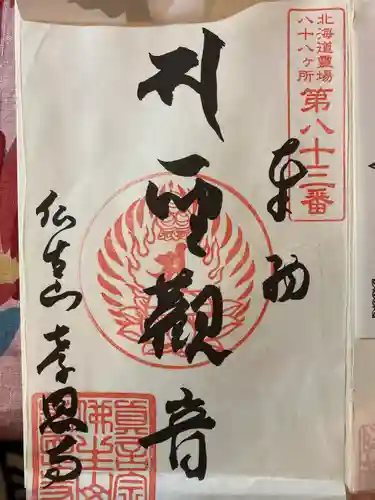 北海道霊場
八十八ヶ所
第八十三番
奉納
聖觀音
仏生山 孝恩寺
真言宗
佛生山